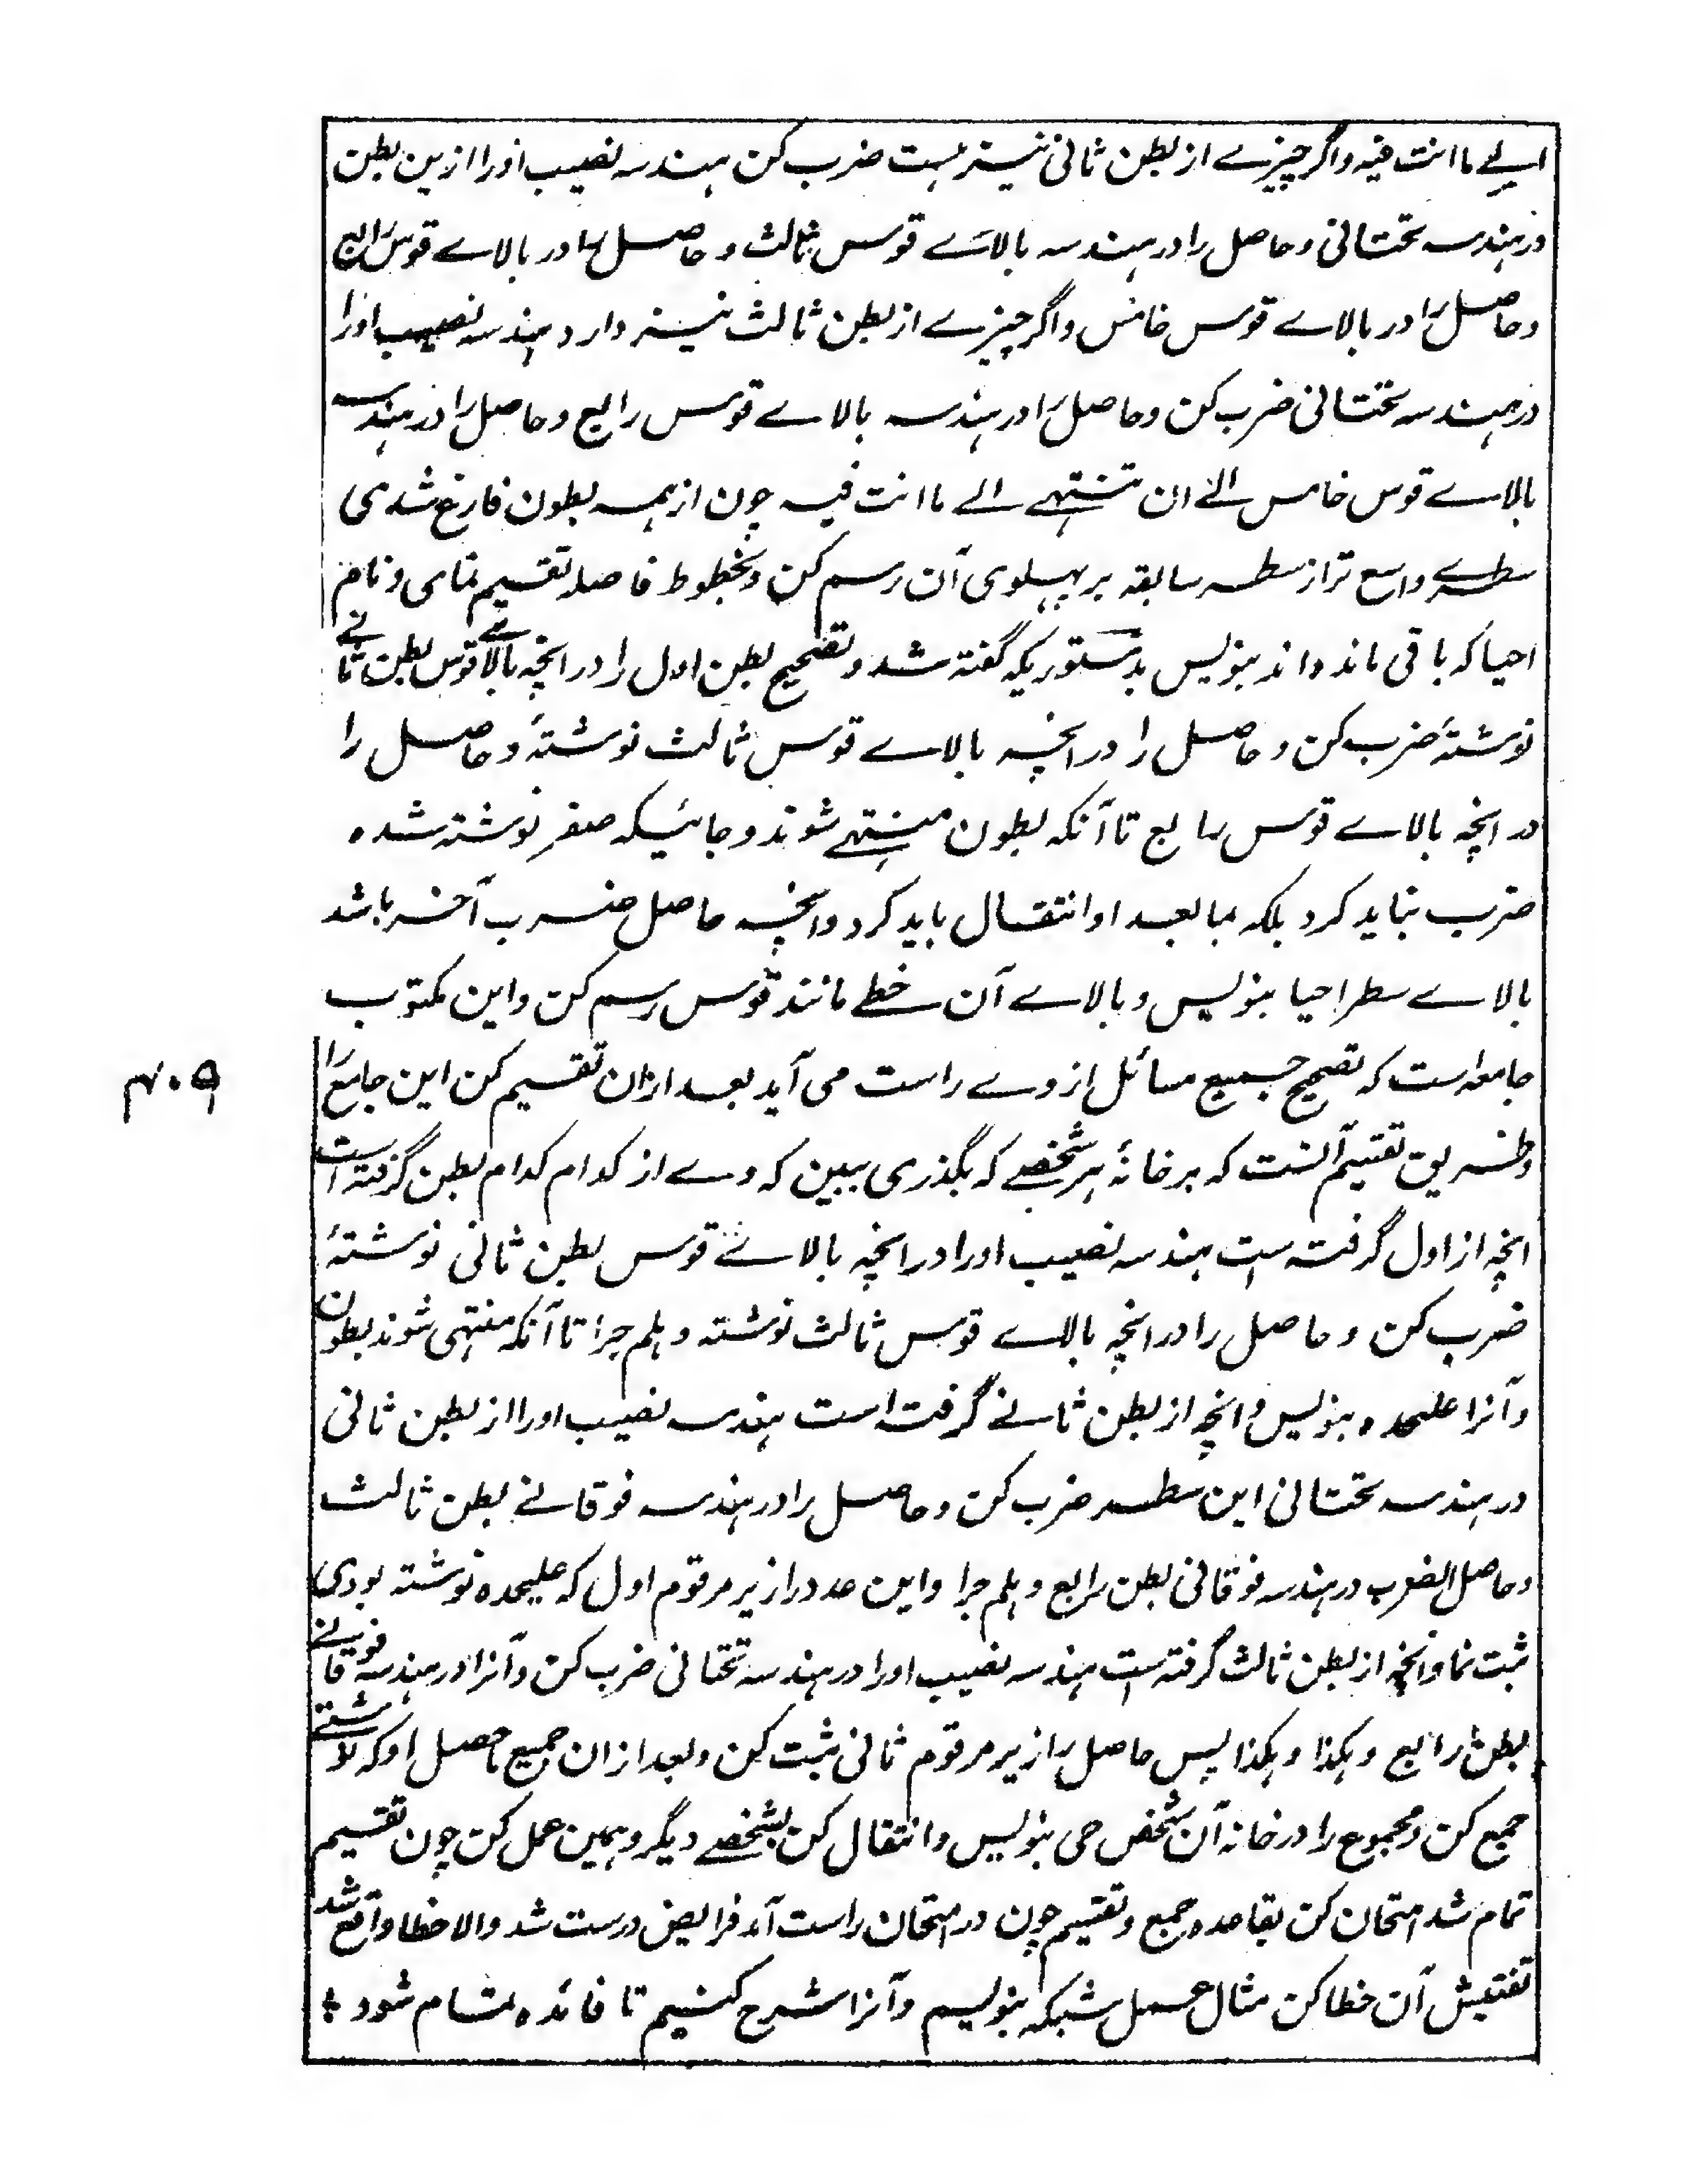 الے ما انت فیه واگر چیزے از بطن ثانی نیز هست ضرب کن هندسه نصیب او را ازین بطن
در هندسه تحتانی و حاصل را در هندسه بالاے قوس ثالث و حاصل را در بالاے قوس رابع
و حاصل را در بالاے قوس خامس واگر چیزے از بطن ثالث نیز دارد هندسه نصیب او را
در هندسه تحتانی ضرب کن و حاصل را در هندسه بالاے قوس رابع و حاصل را در هندسه
بالاے قوس خامس الے ان تنتهے الے ما انت فیه چون از همه بطون فارغ شدی
سطرے واسع تر از سطر سابقه بر پهلوی آن رسم کن و بخطوط فاصله تقسیم نمای و نام
احیا که باقی مانده اند بنویس بدستوریکه گفته شد و تصحیح بطن اول را در انچه بالاے قوس بطن ثانے
نوشتهٔ ضرب کن و حاصل را در انچه بالاے قوس ثالث نوشتهٔ و حاصل را
در انچه بالاے قوس رابع تا آنکه بطون منتهے شوند و جائیکه صفر نوشته شده
ضرب نباید کرد بلکه بما بعد او انتقال باید کرد وانچه حاصل ضرب آخر باشد
بالاے سطر احیا بنویس و بالاے آن خطے مانند قوس رسم کن و این مکتوب
جامعه است که تصحیح جمیع مسائل از وے راست می آید بعد ازان تقسیم کن این جامع را
و طریق تقسیم آنست که بر خانهٔ هر شخصے که بگذری ببین که وے از کدام کدام بطن گرفته است
انچه از اول گرفته است هندسه نصیب او را در انچه بالاے قوس بطن ثانی نوشتهٔ
ضرب کن و حاصل را در انچه بالاے قوس ثالث نوشته و هلم جرا تا آنکه منتهی شوند بطون
و آنرا علیحده بنویس و انچه از بطن ثانے گرفته است هندسه نصیب او را از بطن ثانی
در هندسه تحتانی این سطر ضرب کن و حاصل را در هندسه فوقانے بطن ثالث
و حاصل الضرب در هندسه فوقانی بطن رابع و هلم جرا و این عدد را زیر مرقوم اول که علیحده نوشته بودی
ثبت نما و انچه از بطن ثالث گرفته است هندسه نصیب او را در هندسه تحتانی ضرب کن و آنرا در هندسه فوقانے
بطن رابع و هکذا و هکذا پس حاصل را زیر مرقوم ثانی ثبت کن و بعد ازان جمیع حاصل او که نوشتے
جمع کن و مجموع را در خانه آن شخص حی بنویس و انتقال کن بشخصے دیگر و همین عمل کن چون تقسیم
تمام شد امتحان کن بقاعده جمع و تقسیم چون در امتحان راست آمد فرایض درست شد والا خطا واقع شد
تفتیش آن خطا کن مثال عمل شبکه بنویسیم و آنرا شرح کنیم تا فائده تمام شود ؛
۴۰۹